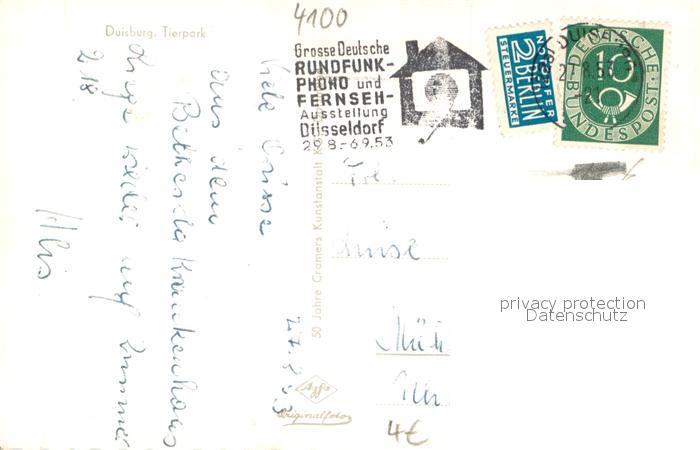 4100
Duisburg, Tierpark
Grosse Deutsche
RUNDFUNK-
PHONO und
FERNSEH-
Ausstellung
Düsseldorf
29.8.-6.9.53
NOTOPFER
2 BERLIN
STEUERMARKE
DEUTSCHE
BUNDESPOST
DUISBURG
53
21
Viele Grüsse
aus dem
Bethesda Krankenhaus
Liege wieder auf Zimmer
218.
Frl.
Luise
50 Jahre Cramers Kunstanstalt K
Agfa
Originalfoto
4€
privacy protection
Datenschutz